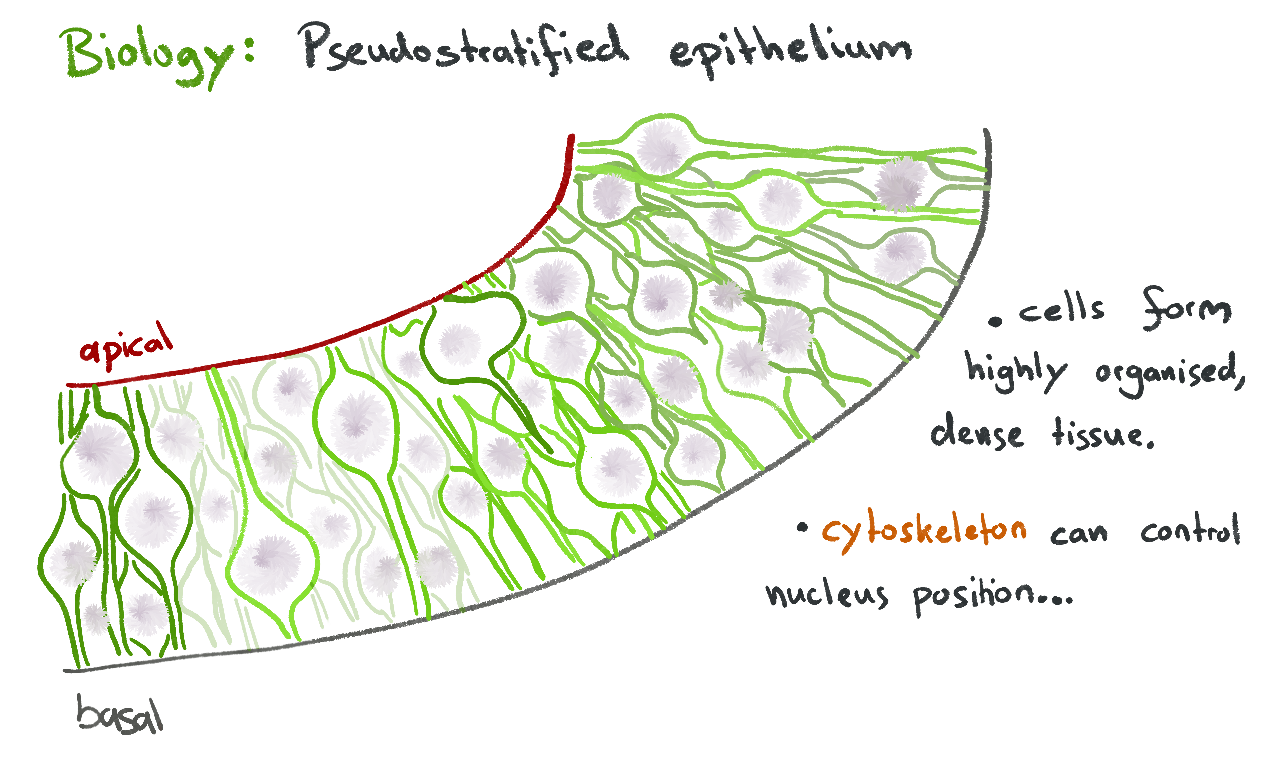 Biology: Pseudostratified epithelium
apical
• cells form
highly organised,
dense tissue.
• cytoskeleton can control
nucleus position...
basal